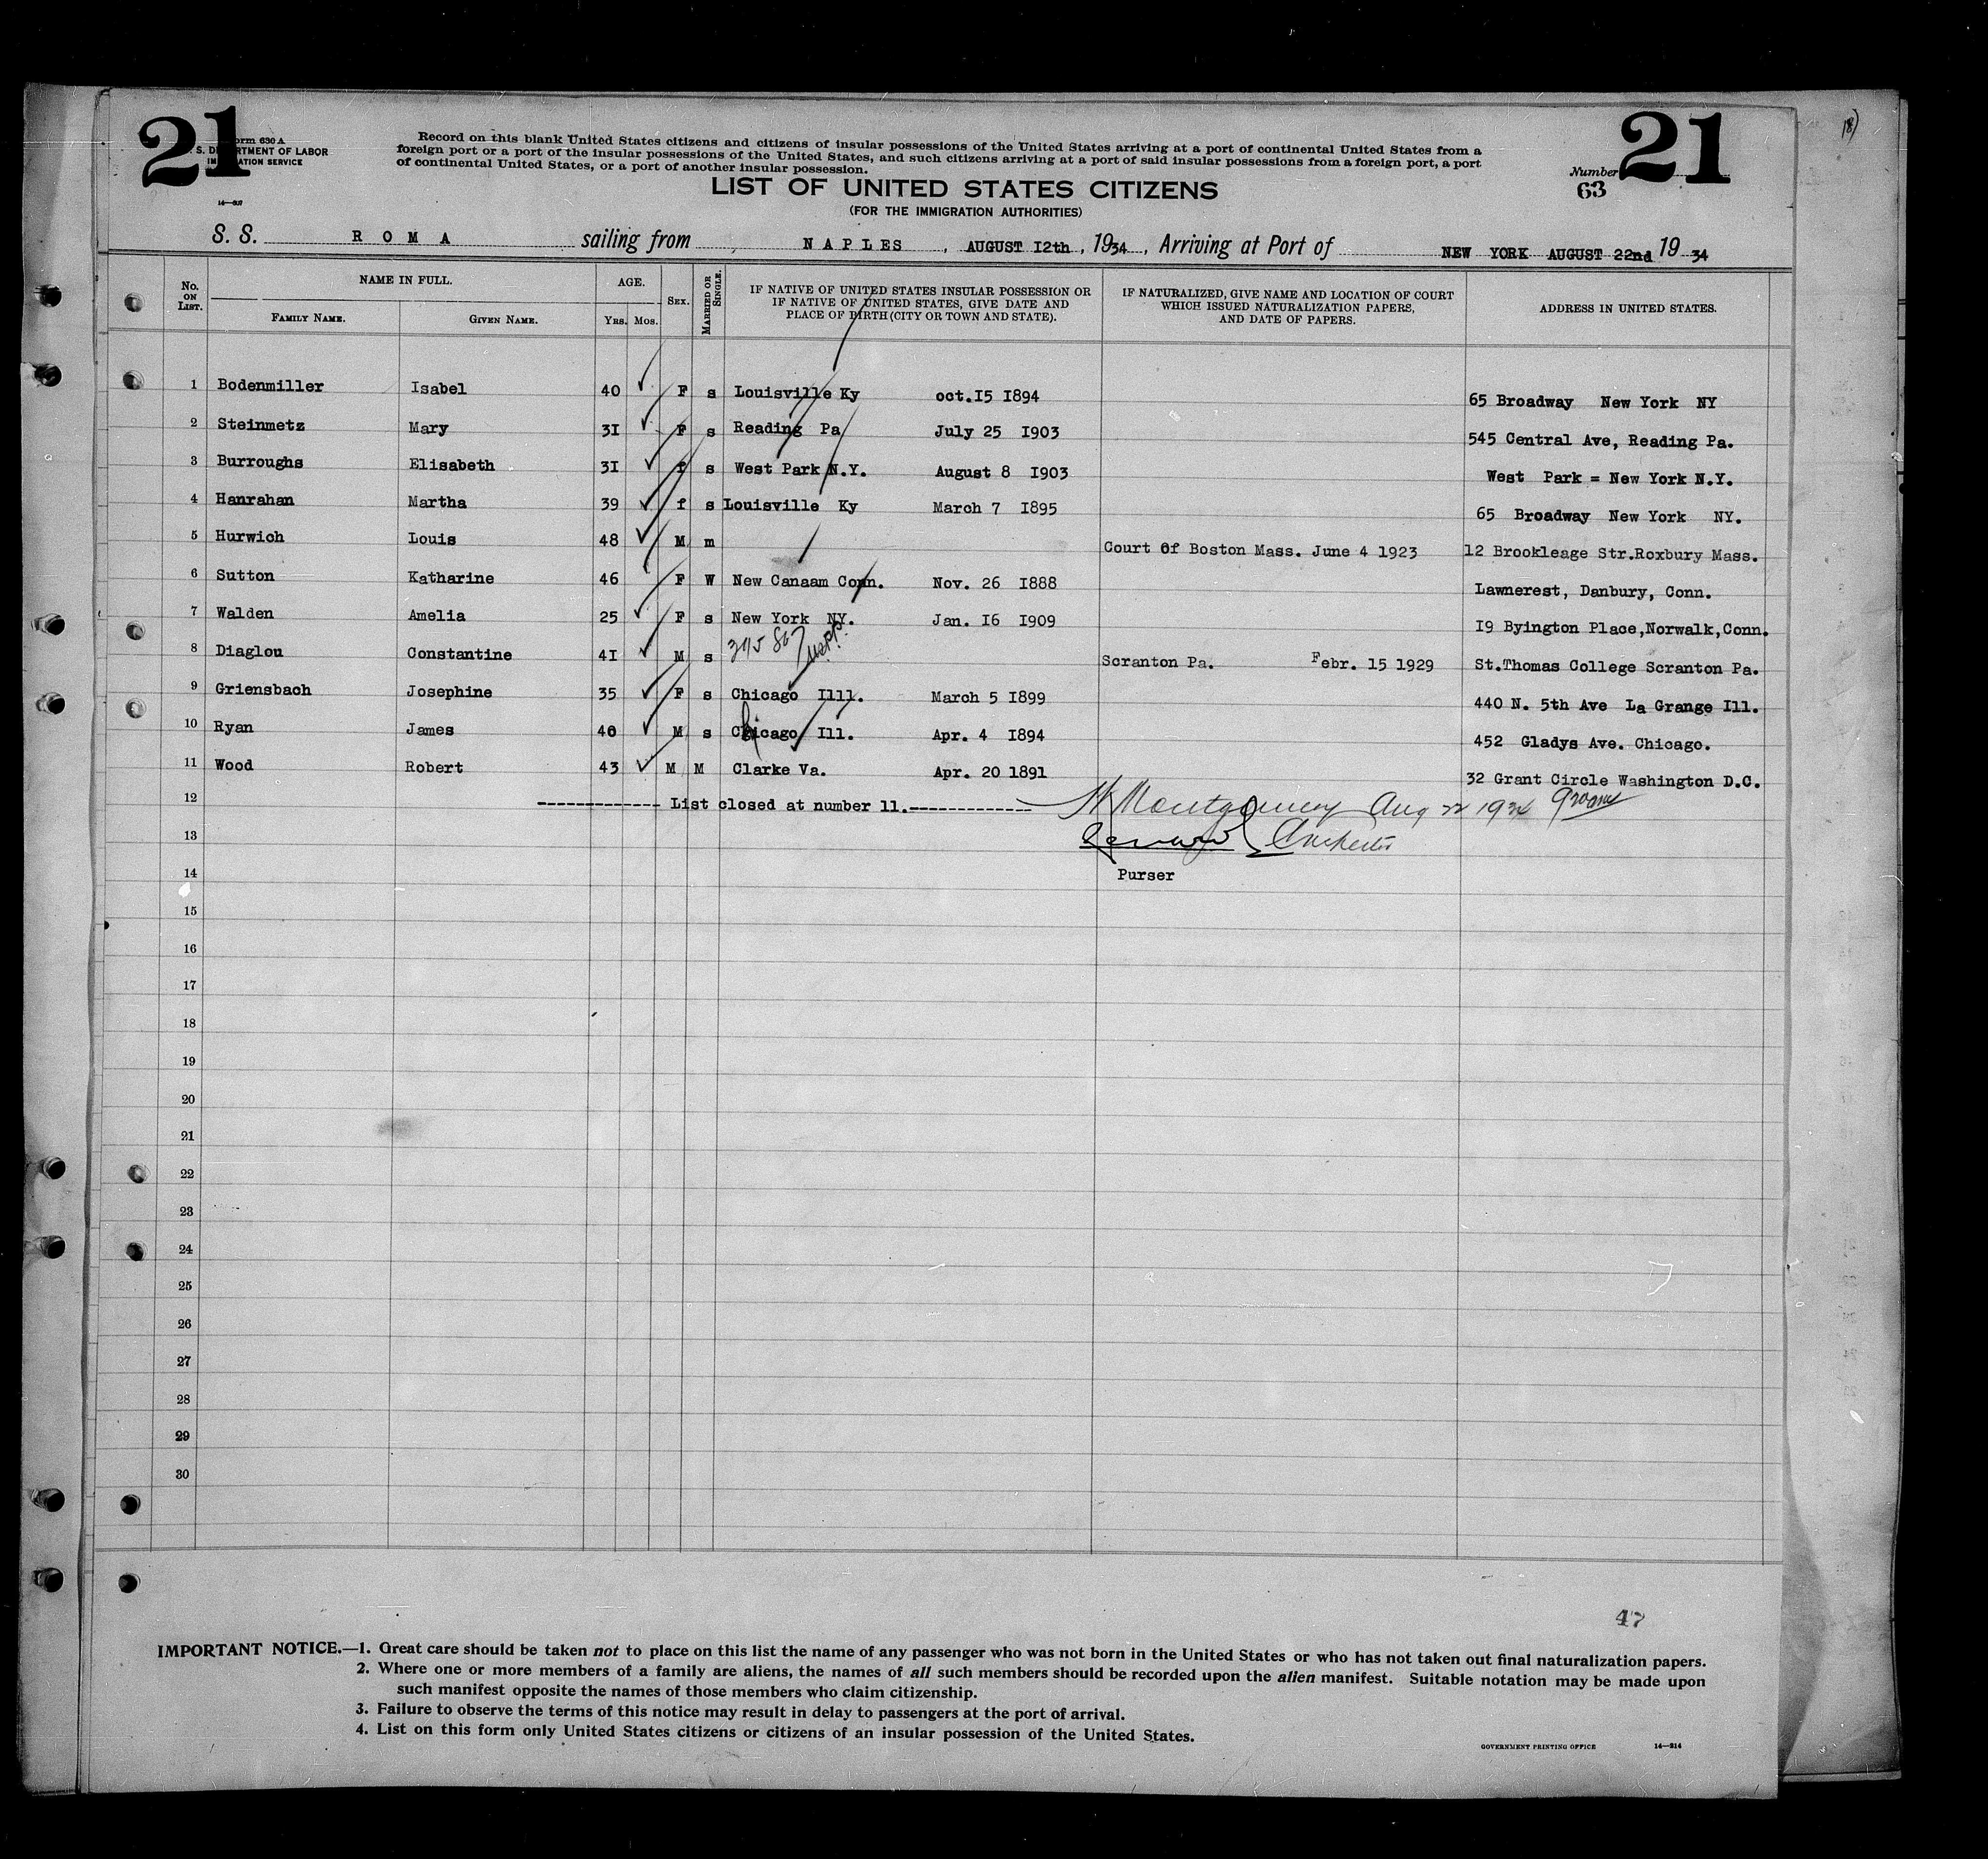 21
Form 630 A
S. DEPARTMENT OF LABOR
IMMIGRATION SERVICE
14—
Record on this blank United States citizens and citizens of insular possessions of the United States arriving at a port of continental United States from a
foreign port or a port of the insular possessions of the United States, and such citizens arriving at a port of said insular possessions from a foreign port, a port
of continental United States, or a port of another insular possession.
LIST OF UNITED STATES CITIZENS
(FOR THE IMMIGRATION AUTHORITIES)
Number 21
63
18
S. S. R O M A sailing from N A P L E S , AUGUST I2th , 1934 , Arriving at Port of NEW YORK AUGUST 22nd 19 34
No. ON LIST. NAME IN FULL. FAMILY NAME. GIVEN NAME. AGE. YRS. MOS. SEX. MARRIED OR SINGLE. IF NATIVE OF UNITED STATES INSULAR POSSESSION OR IF NATIVE OF UNITED STATES, GIVE DATE AND PLACE OF BIRTH (CITY OR TOWN AND STATE). IF NATURALIZED, GIVE NAME AND LOCATION OF COURT WHICH ISSUED NATURALIZATION PAPERS, AND DATE OF PAPERS. ADDRESS IN UNITED STATES.
1 Bodenmiller Isabel 40 F s Louisville Ky oct.I5 I894 65 Broadway New York NY
2 Steinmetz Mary 3I F s Reading Pa July 25 I903 545 Central Ave, Reading Pa.
3 Burroughs Elisabeth 3I f s West Park N.Y. August 8 I903 West Park = New York N.Y.
4 Hanrahan Martha 39 f s Louisville Ky March 7 I895 65 Broadway New York NY.
5 Hurwich Louis 48 M m Court Of Boston Mass. June 4 1923 12 Brookleage Str.Roxbury Mass.
6 Sutton Katharine 46 F W New Canaam Conn. Nov. 26 I888 Lawnerest, Danbury, Conn.
7 Walden Amelia 25 F s New York NY. Jan. I6 I909 I9 Byington Place,Norwalk,Conn.
8 Diaglou Constantine 4I M s Scranton Pa. Febr. 15 1929 St.Thomas College Scranton Pa.
9 Griensbach Josephine 35 F s Chicago Illl. March 5 I899 440 N. 5th Ave La Grange Ill.
10 Ryan James 40 M s Chicago Ill. Apr. 4 I894 452 Gladys Ave. Chicago.
11 Wood Robert 43 M M Clarke Va. Apr. 20 1891 32 Grant Circle Washington D.C.
12 ------------- List closed at number 11.------------- H Montgomery Aug 22 1934
13
14 Purser
15
16
17
18
19
20
21
22
23
24
25
26
27
28
29
30
47
IMPORTANT NOTICE.—1. Great care should be taken not to place on this list the name of any passenger who was not born in the United States or who has not taken out final naturalization papers.
2. Where one or more members of a family are aliens, the names of all such members should be recorded upon the alien manifest. Suitable notation may be made upon
such manifest opposite the names of those members who claim citizenship.
3. Failure to observe the terms of this notice may result in delay to passengers at the port of arrival.
4. List on this form only United States citizens or citizens of an insular possession of the United States.
GOVERNMENT PRINTING OFFICE 14—314